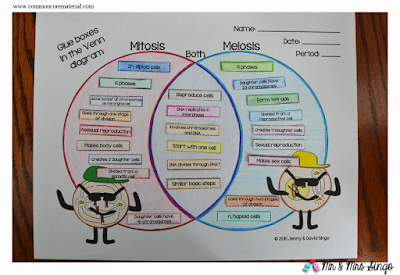 www.commoncorematerial.com
Glue boxes
in the Venn
diagram
Mitosis
Both
Meiosis
Name:
Date:
Period:
2n, diploid cells
5 phases
Same number of chromosomes
Goes through one stage
of division
Asexual reproduction
Makes body cells
Creates 2 daughter cells
Divided from a
somatic cell
Daughter cells have
46 chromosomes
Reproduce cells
DNA replicates in
interphase
Involves chromosomes
and DNA
Start with one cell
DNA divides through
Similar basic steps
9 phases
Daughter cells have
23 chromosomes
Form tetrads
Divided from a
reproductive cell
Creates 4 daughter cells
Sexual reproduction
Makes sex cells
Goes through two stages
of division
n, haploid cells
© 2015 Jenny & David Singo
Mr & Mrs Singo